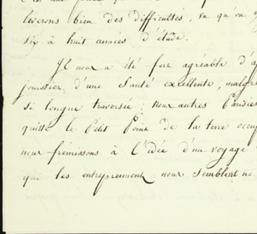 livrons bien des difficultés, vu qu'on
six à huit années d'étude.
Il nous a été fort agréable d'a
jouissiez d'une santé excellente, malgré
si longue traversée ; nous autres
quitté le Petit Point de la terre
nous frémissons à l'idée d'un voyage
que les entreprennent nous semblent